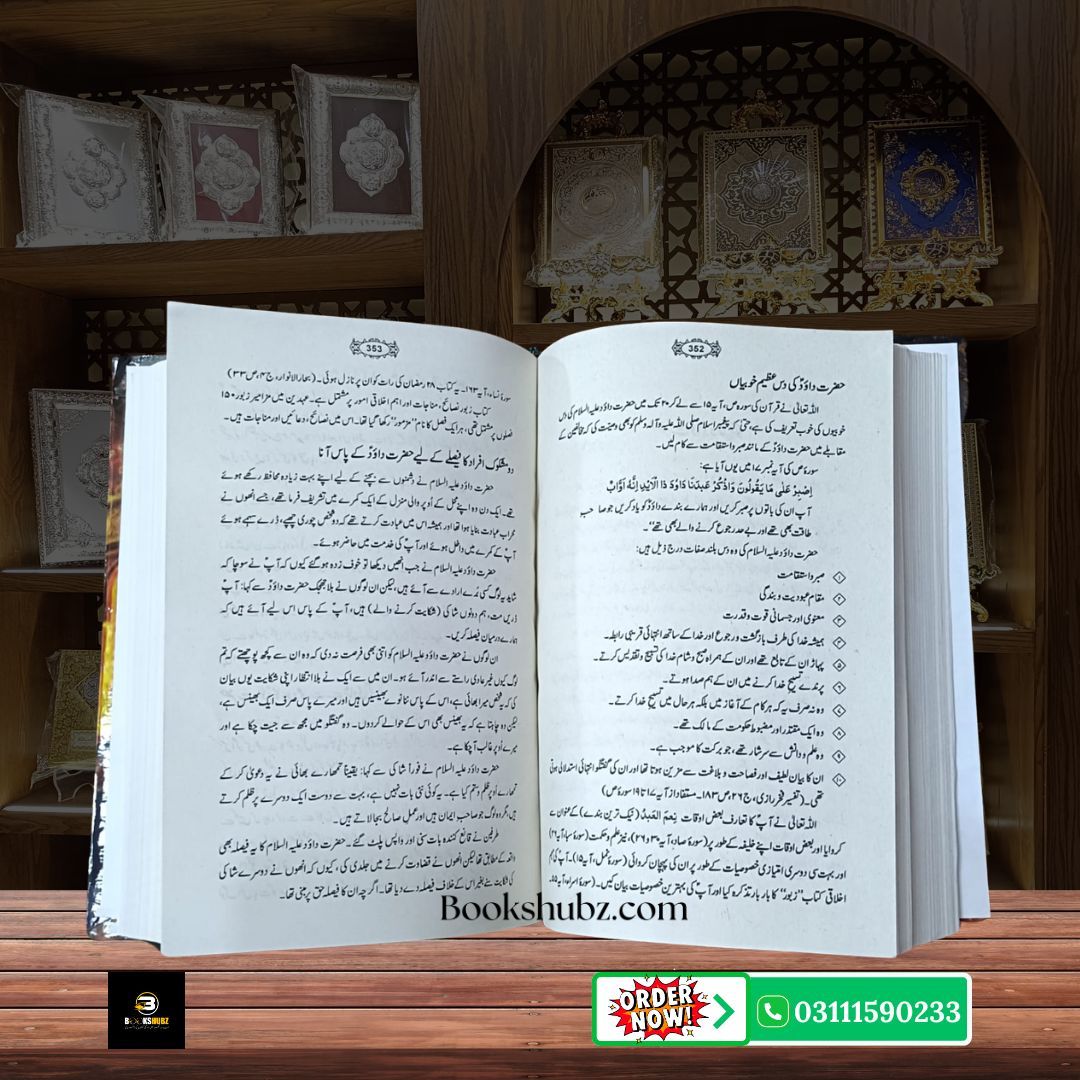 352
حضرت داؤدؑ کی دس عظیم خوبیاں
اللہ تعالیٰ نے قرآن کی سورہ ص، آیہ ۱۵ سے لے کر ۲۰ تک میں حضرت داؤد علیہ السلام کی دس
خوبیوں کی خوب تعریف کی ہے، حتیٰ کہ پیغمبر اسلام صلی اللہ علیہ وآلہ وسلم کو بھی وصیت کی کہ مخالفین کے
مقابلے میں حضرت داؤدؑ کے مانند صبر و استقامت سے کام لیں۔
سورۂ ص کی آیہ نمبر ۱۷ میں یوں آیا ہے:
اِصْبِرْ عَلٰى مَا يَقُوْلُوْنَ وَاذْكُرْ عَبْدَنَا دَاوٗدَ ذَا الْاَيْدِ اِنَّهٗٓ اَوَّابٌ
آپ ان کی باتوں پر صبر کریں اور ہمارے بندے داؤدؑ کو یاد کریں جو صاحب
طاقت بھی تھے اور بے حد رجوع کرنے والے بھی تھے"۔
حضرت داؤد علیہ السلام کی وہ دس بلند صفات درج ذیل ہیں:
۱ صبر و استقامت
۲ مقام عبودیت و بندگی
۳ معنوی اور جسمانی قوت و قدرت
۴ ہمیشہ خدا کی طرف بازگشت و رجوع اور خدا کے ساتھ انتہائی قریبی رابطہ۔
۵ پہاڑ ان کے تابع تھے اور ان کے ہمراہ صبح و شام خدا کی تسبیح و تقدیس کرتے۔
۶ پرندے تسبیح خدا کرنے میں ان کے ہم صدا ہوتے۔
۷ وہ نہ صرف یہ کہ ہر کام کے آغاز میں بلکہ ہر حال میں تسبیح خدا کرتے۔
۸ وہ ایک مقتدر اور مضبوط حکومت کے مالک تھے۔
۹ وہ علم و دانش سے سرشار تھے، جو برکت کا موجب ہے۔
۱۰ ان کا بیان لطیف اور فصاحت و بلاغت سے مزین ہوتا تھا اور ان کی گفتگو انتہائی استدلالی ہوتی
تھی۔ (تفسیر فخر رازی، ج ۲۶، ص ۱۸۳۔ مستفاد از آیہ ۱۷ تا ۱۹ سورۂ ص)
اللہ تعالیٰ نے آپؑ کا تعارف بعض اوقات نِعْمَ الْعَبْدُ (نیک ترین بندے) کے عنوان سے
کروایا اور بعض اوقات اپنے خلیفہ کے طور پر (سورۂ صاد، آیہ ۲۶ و ۳۰)، نیز علم و حکمت (سورۂ سبا، آیہ ۲)
اور بہت کی دوسری امتیازی خصوصیات کے طور پر ان کی پہچان کروائی (سورۂ نمل، آیہ ۱۵)۔ آپؑ کی اہم
اخلاقی کتاب "زبور" کا بار بار تذکرہ کیا اور آپؑ کی بہترین خصوصیات بیان کیں۔ (سورۂ اسراء، آیہ ۵۵۔
353
سورۂ نساء، آیہ ۱۶۳۔ یہ کتاب ۲۸ رمضان کی رات کو ان پر نازل ہوئی۔ (بحار الانوار، ج ۴، ص ۳۳)
کتاب زبور نصائح، مناجات اور اہم اخلاقی امور پر مشتمل ہے۔ عہدین میں مزامیر زبور ۱۵۰
فصلوں پر مشتمل تھی، ہر ایک فصل کا نام "مزمور" رکھا گیا تھا۔ اس میں نصائح، دعائیں اور مناجات ہیں۔
دو مشکوک افراد کا فیصلے کے لیے حضرت داؤدؑ کے پاس آنا
حضرت داؤد علیہ السلام نے دشمنوں سے بچنے کے لیے اپنے بہت زیادہ محافظ رکھے ہوئے
تھے۔ ایک دن وہ اپنے محل کے اوپر والی منزل کے ایک کمرے میں تشریف فرما تھے، جسے انھوں نے
محراب عبادت بنایا ہوا تھا اور ہمیشہ اس میں عبادت کرتے تھے کہ دو شخص چوری چھپے، ڈرے سہمے ہوئے
آپؑ کے کمرے میں داخل ہوئے اور آپؑ کی خدمت میں حاضر ہوئے۔
حضرت داؤد علیہ السلام نے جب انھیں دیکھا تو خوف زدہ ہو گئے کیوں کہ آپؑ نے سوچا کہ
شاید یہ لوگ کسی بُرے ارادے سے آئے ہیں، لیکن ان لوگوں نے بلا جھجک حضرت داؤدؑ سے کہا: آپؑ
ڈریں مت، ہم دونوں شاکی (شکایت کرنے والے) ہیں، آپؑ کے پاس اس لیے آئے ہیں کہ
ہمارے درمیان فیصلہ کریں۔
ان لوگوں نے حضرت داؤد علیہ السلام کو اتنی بھی فرصت نہ دی کہ وہ ان سے کچھ پوچھتے کہ تم
لوگ کیوں غیر عادی راستے سے اندر آئے ہو۔ ان میں سے ایک نے بلا انتظار اپنی شکایت یوں بیان
کی کہ یہ شخص میرا بھائی ہے، اس کے پاس ننانوے بھینسیں ہیں اور میرے پاس صرف ایک بھینس ہے،
لیکن وہ چاہتا ہے کہ یہ بھینس بھی اس کے حوالے کر دوں۔ وہ گفتگو میں مجھ سے جیت چکا ہے اور
میرے اوپر غالب آ چکا ہے۔
حضرت داؤد علیہ السلام نے فوراً شاکی سے کہا: یقیناً تمھارے بھائی نے یہ دعویٰ کر کے
تمھارے اوپر ظلم و ستم کیا ہے۔ یہ کوئی نئی بات نہیں ہے، بہت سے دوست ایک دوسرے پر ظلم کرتے
ہیں، مگر وہ لوگ جو صاحب ایمان ہیں اور عمل صالح بجا لاتے ہیں۔
طرفین نے قانع کنندہ بات سنی اور واپس پلٹ گئے۔ حضرت داؤد علیہ السلام کا یہ فیصلہ بھی
واقعہ کے مطابق تھا لیکن انھوں نے قضاوت کرنے میں جلدی کی، کیوں کہ انھوں نے دوسرے شاکی
کی شکایت سنے بغیر اس کے خلاف فیصلہ دے دیا تھا۔ اگرچہ ان کا فیصلہ حق پر مبنی تھا۔
Bookshubz.com
BOOKSHUBZ
ORDER
NOW!
03111590233